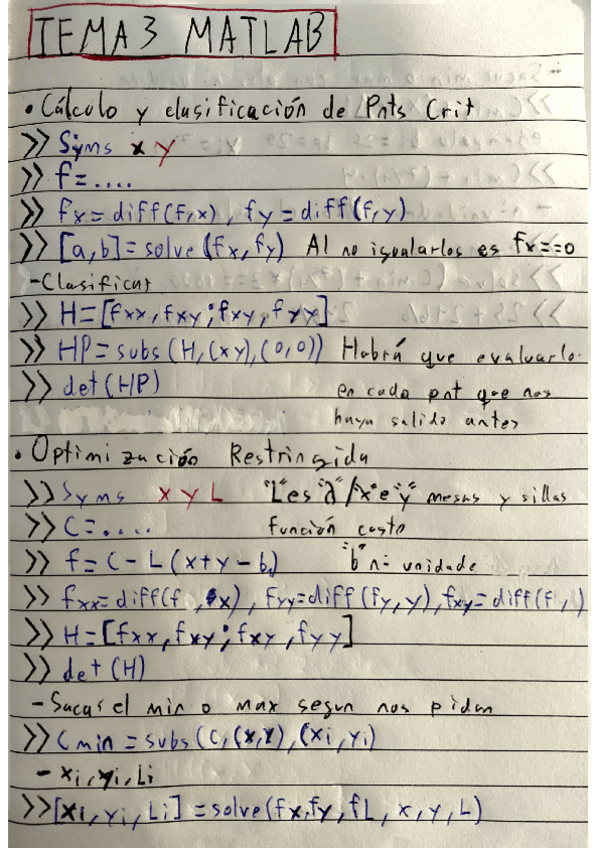 TEMA 3 MATLAB
• Cálculo y clasificación de Pnts Crit
>> Syms x y
>> f=....
>> fx=diff(f,x), fy=diff(f,y)
>> [a,b]=solve(fx,fy) Al no igualarlos es fx==0
-Clasificar
>> H=[fxx,fxy;fxy,fyy]
>> HP=subs(H,(xy),(0,0)) Habrá que evaluarlo
>> det(HP) en cada pnt que nos
haya salido antes
• Optimización Restringida
>> Syms x y L "L" es "λ" / "x" e "y" mesas y sillas
>> C=.... función costo
>> f=C-L(x+y-b) "b" nº unidade
>> fxx=diff(f,x), fyy=diff(fy,y), fxy=diff(f,)
>> H=[fxx,fxy;fxy,fyy]
>> det(H)
-Sacar el min o max segun nos pidan
>> Cmin=subs(C,(x,y),(xi,yi)
-xi,yi,Li
>>[xi,yi,Li]=solve(fx,fy,fL,x,y,L)